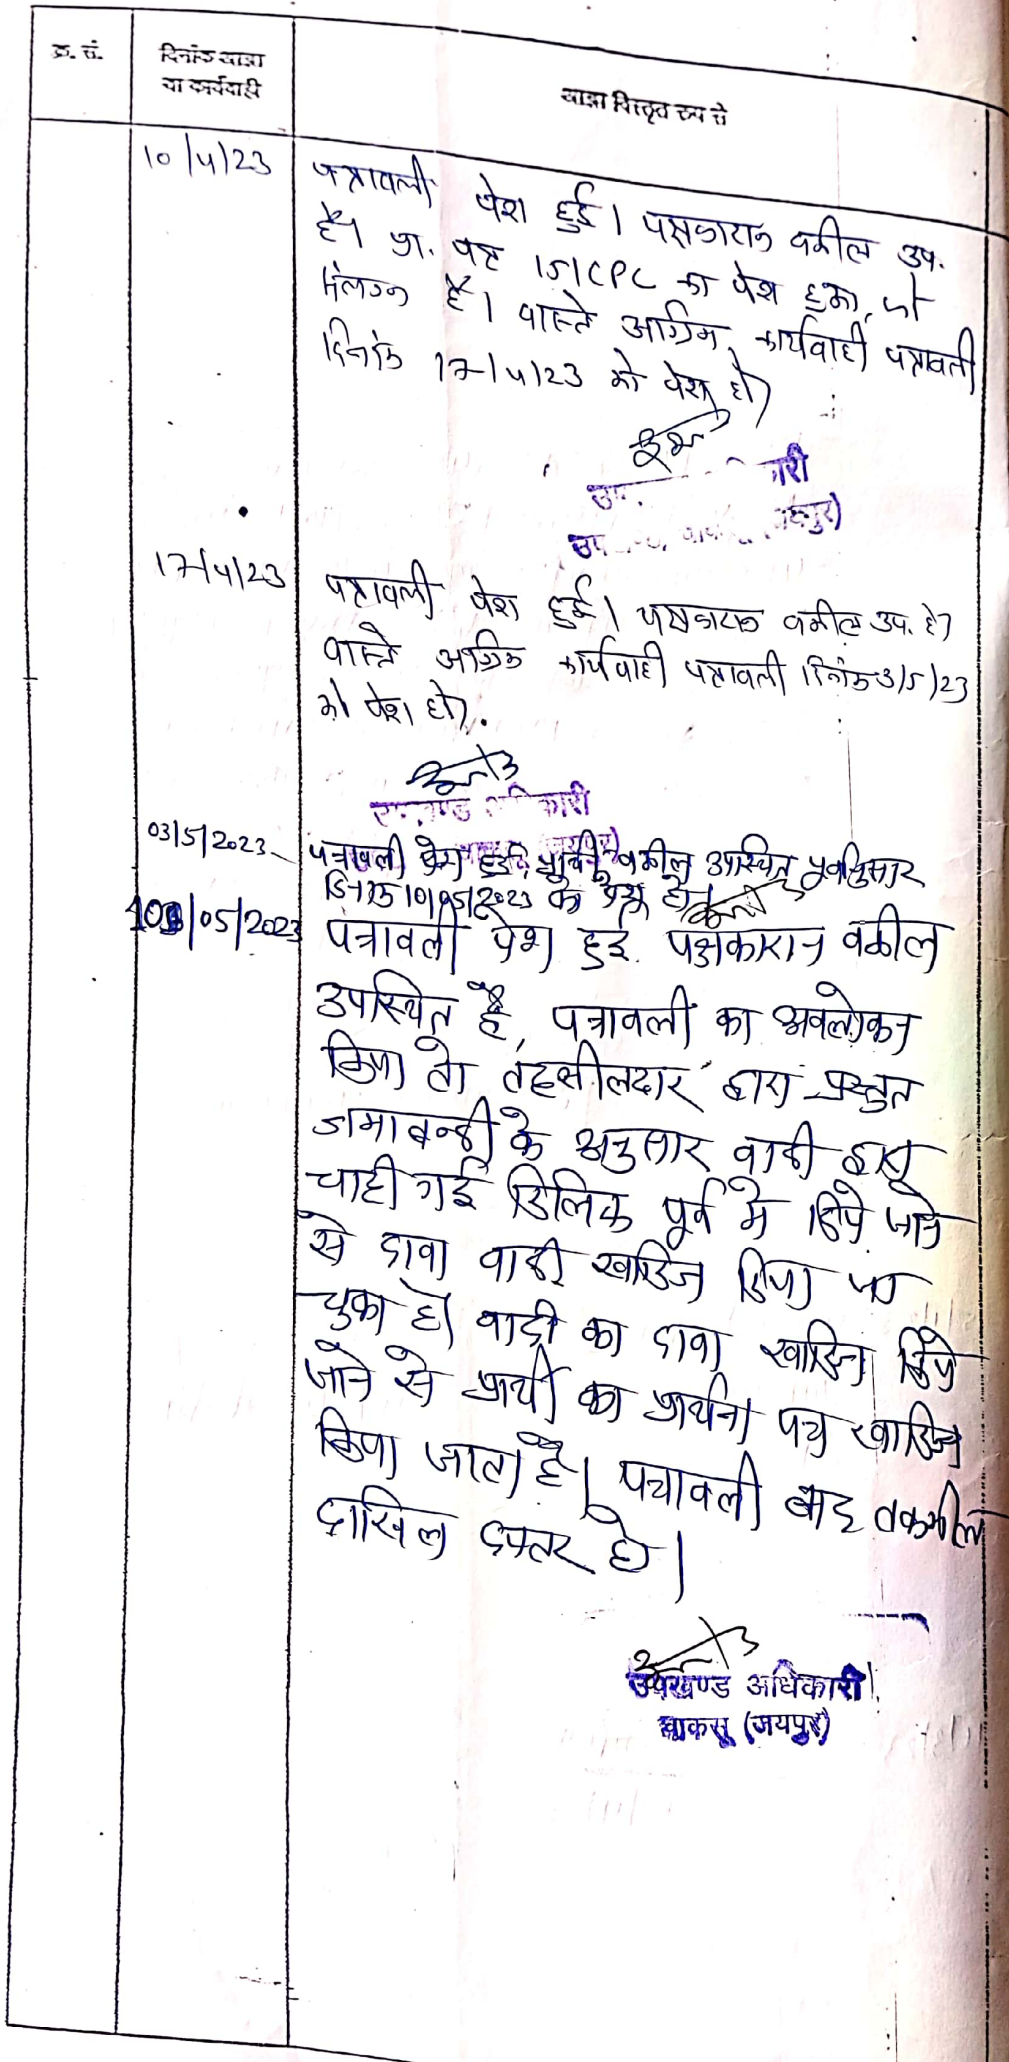 क्र. सं.
दिनांक आज्ञा
या कार्यवाही
आज्ञा विस्तृत रूप से
10/4/23
पत्रावली पेश हुई। पक्षकारान वकील उप.
है। प्रा. पत्र 151CPC का पेश हुआ, जो
संलग्न है। वास्ते अग्रिम कार्यवाही पत्रावली
दिनांक 17/4/23 को पेश हो।
17/4/23
पत्रावली पेश हुई। पक्षकारान वकील उप. है।
वास्ते अग्रिम कार्यवाही पत्रावली दिनांक 3/5/23
को पेश हो।
उपखण्ड अधिकारी
03/5/2023
पत्रावली पेश हुई, वकील उपस्थित पूर्वानुसार
दिनांक 10/05/2023 को पेश हो।
10/05/2023
पत्रावली पेश हुई. पक्षकारान वकील
उपस्थित है, पत्रावली का अवलोकन
किया तो तहसीलदार द्वारा प्रस्तुत
जमाबन्दी के अनुसार वादी द्वारा
चाही गई रिलिफ पूर्व मे दिये जाने
से दावा वादी खारिज किया जा
चुका है। वादी का दावा खारिज किये
जाने से प्रार्थी का प्रार्थना पत्र खारिज
किया जाता है। पत्रावली बाद तकमील
दाखिल दफ्तर हो।
उपखण्ड अधिकारी
चाकसू (जयपुर)